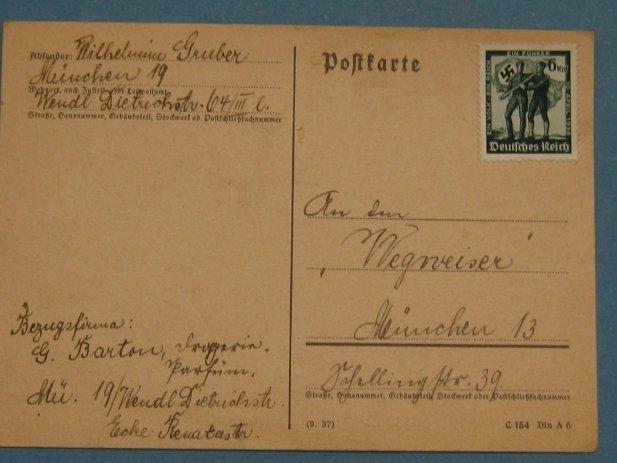 Absender: Wilhelmine Gruber
München 19
Wohnort, auch Zustell- oder Leitpostamt
Wendl Dietrichstr. 64/III l.
Straße, Hausnummer, Gebäudeteil, Stockwerk od. Postschließfachnummer
Postkarte
EIN FÜHRER
EIN VOLK EIN REICH
6
Deutsches Reich
An den
"Wegweiser"
München 13
Schellingstr. 39
Straße, Hausnummer, Gebäudeteil, Stockwerk oder Postschließfachnummer
Bezugsfirma:
G. Barton, Drogerie.
Parfüm.
Mü. 19/Wendl Dietrichstr.
Ecke Renatastr.
(9. 37)
C 154 Din A 6